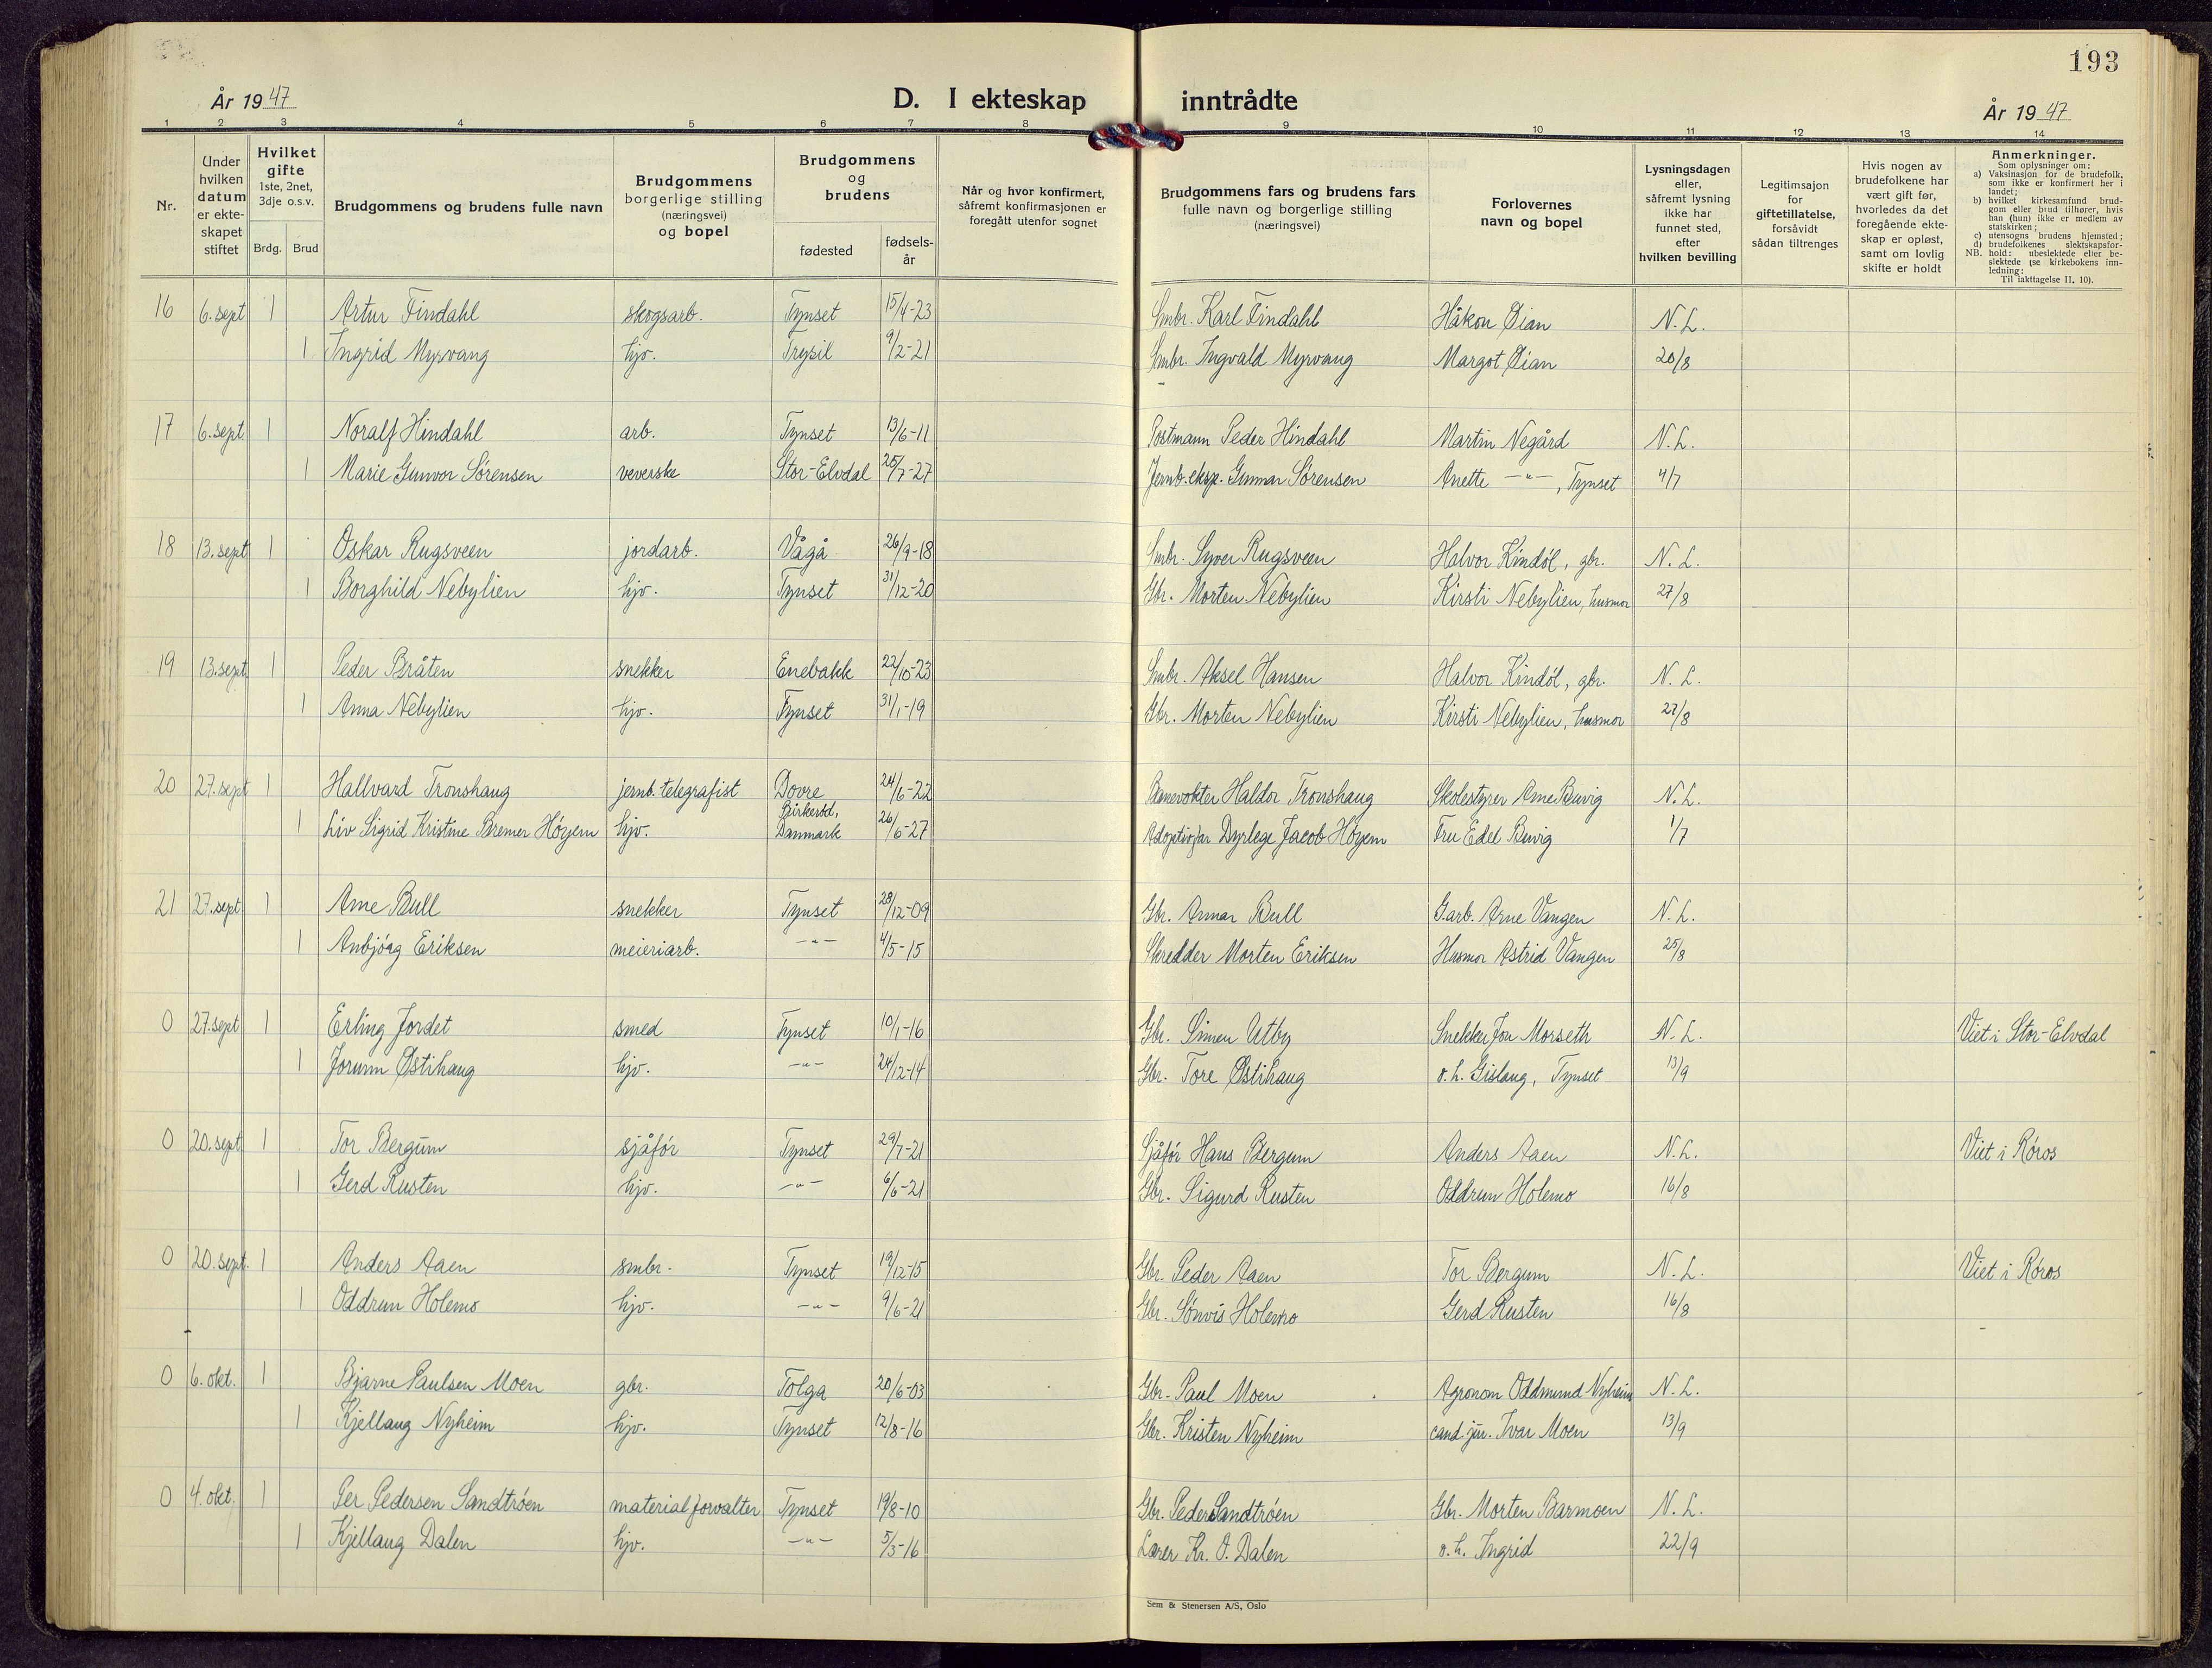 193
År 1947 D. I ekteskap inntrådte År 1947
1 2 3 4 5 6 7 8 9 10 11 12 13 14
Nr.
Under hvilken datum er ekte-skapet stiftet
Hvilket gifte 1ste, 2net, 3dje o.s.v. Brdg. Brud
Brudgommens og brudens fulle navn
Brudgommens borgerlige stilling (næringsvei) og bopel
Brudgommens og brudens fødested fødsels-år
Når og hvor konfirmert, såfremt konfirmasjonen er foregått utenfor sognet
Brudgommens fars og brudens fars fulle navn og borgerlige stilling (næringsvei)
Forlovernes navn og bopel
Lysningsdagen eller, såfremt lysning ikke har funnet sted, efter hvilken bevilling
Legitimsajon for giftetillatelse, forsåvidt sådan tiltrenges
Hvis nogen av brudefolkene har vært gift før, hvorledes da det foregående ekte-skap er opløst, samt om lovlig skifte er holdt
Anmerkninger.
Som oplysninger om:
a) Vaksinasjon for de brudefolk, som ikke er konfirmert her i landet;
b) hvilket kirkesamfund brud-gom eller brud tilhører, hvis han (hun) ikke er medlem av statskirken;
c) utensogns brudens hjemsted;
d) brudefolkenes slektskapsfor-hold: ubeslektede eller be-slektede (se kirkebokens inn-ledning:
NB. Til iakttagelse II, 10).
16 6. sept 1 Artur Findahl skogsarb. Tynset 15/4-23 Smbr. Karl Findahl Håkon Øian N. L.
1 Ingrid Myrvang hjv. Trysil 9/2-21 Smbr. Ingvald Myrvang Margot Øian 20/8
17 6. sept. 1 Noralf Hindahl arb. Tynset 13/6-11 Postmann Peder Hindahl Martin Negård N. L.
1 Marie Gunvor Sørensen veverske Stor-Elvdal 25/7-27 Jernb.eksp. Gunnar Sørensen Anette -"-, Tynset 4/7
18 13. sept 1 Oskar Rugsveen jordarb. Vågå 26/9-18 Smbr. Syver Rugsveen Halvor Kindöl, gbr. N. L.
1 Borghild Nebylien hjv. Tynset 31/12-20 Gbr. Morten Nebylien Kirsti Nebylien, husmor 27/8
19 13. sept. 1 Peder Bråten snekker Enebakk 22/10-23 Smbr. Aksel Hansen Halvor Kindöl, gbr. N. L.
1 Anna Nebylien hjv. Tynset 31/1-19 Gbr. Morten Nebylien Kirsti Nebylien, husmor 27/8
20 27. sept 1 Hallvard Tronshaug jernb. telegrafist Dovre 24/6-22 Banevokter Haldor Tronshaug Skolestyrer Arne Buvig N. L.
1 Liv Sigrid Kristine Bremer Höyem hjv. Birkeröd, Danmark 26/6-27 Adoptivfar Dyrlege Jacob Höyem Fru Edel Buvig 1/7
21 27. sept. 1 Arne Bull snekker Tynset 28/12-09 Gbr. Annar Bull G.arb. Arne Vangen N. L.
1 Anbjörg Eriksen meieriarb. -"- 4/5-15 Skredder Morten Eriksen Husmor Astrid Vangen 25/8
0 27. sept 1 Erling Jordet smed Tynset 10/1-16 Gbr. Simen Utby Snekker Jon Morseth N. L. Viet i Stor-Elvdal
1 Jorunn Østihaug hjv. -"- 24/12-14 Gbr. Tore Østihaug o. h. Gislaug, Tynset 13/9
0 20. sept 1 Tor Bergum sjåför Tynset 29/7-21 Sjåför Hans Bergum Anders Aaen N. L. Viet i Röros
1 Gerd Rusten hjv. -"- 6/6-21 Gbr. Sigurd Rusten Oddrun Holemo 16/8
0 20. sept. 1 Anders Aaen smbr. Tynset 19/12-15 Gbr. Peder Aaen Tor Bergum N. L. Viet i Röros
1 Oddrun Holemo hjv. -"- 9/6-21 Gbr. Sönvis Holemo Gerd Rusten 16/8
0 6. okt. 1 Bjarne Paulsen Moen gbr. Tolga 20/6-03 Gbr. Paul Moen Agronom Oddmund Nyheim N. L.
1 Kjellaug Nyheim hjv. Tynset 12/8-16 Gbr. Kristen Nyheim cand. jur. Ivar Moen 13/9
0 4. okt. 1 Per Pedersen Sandtröen materialforvalter Tynset 19/8-10 Gbr. Peder Sandtröen Gbr. Morten Barmoen N. L.
1 Kjellaug Dalen hjv. -"- 5/3-16 Lærer Kr. O. Dalen o. h. Ingrid 22/9
Sem & Stenersen A/S, Oslo